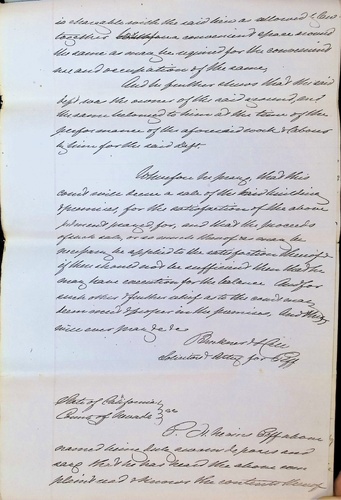 is chargeable with the said lien as allowed by law
together with a convenient space around
the same as may be required for the convenient
use and occupation of the same,
And he further shows that the said
deft. was the owner of the said ground, and
the same belonged to him at the time of the
performance of the aforesaid work & labour
by him for the said Deft.
Wherefore he prays, that this
court will decree a sale of the said building
& premises, for the satisfaction of the above
judgment prayed for, and that the proceeds
of such sale, or so much thereof as may be
necessary be applied to the satisfaction thereof &
if they should not be sufficient then that he
may have execution for the balance And for
such other & further relief as to the court may
deem meet & proper in the premises, And they
will ever pray &c &c
Buckner & Hill
Solicitors & Attys for Plff
State of California
County of Nevada } ss
P. H. Plff above
named being duly sworn deposes and
says that he has heard the above com
plaint read & knows the contents thereof